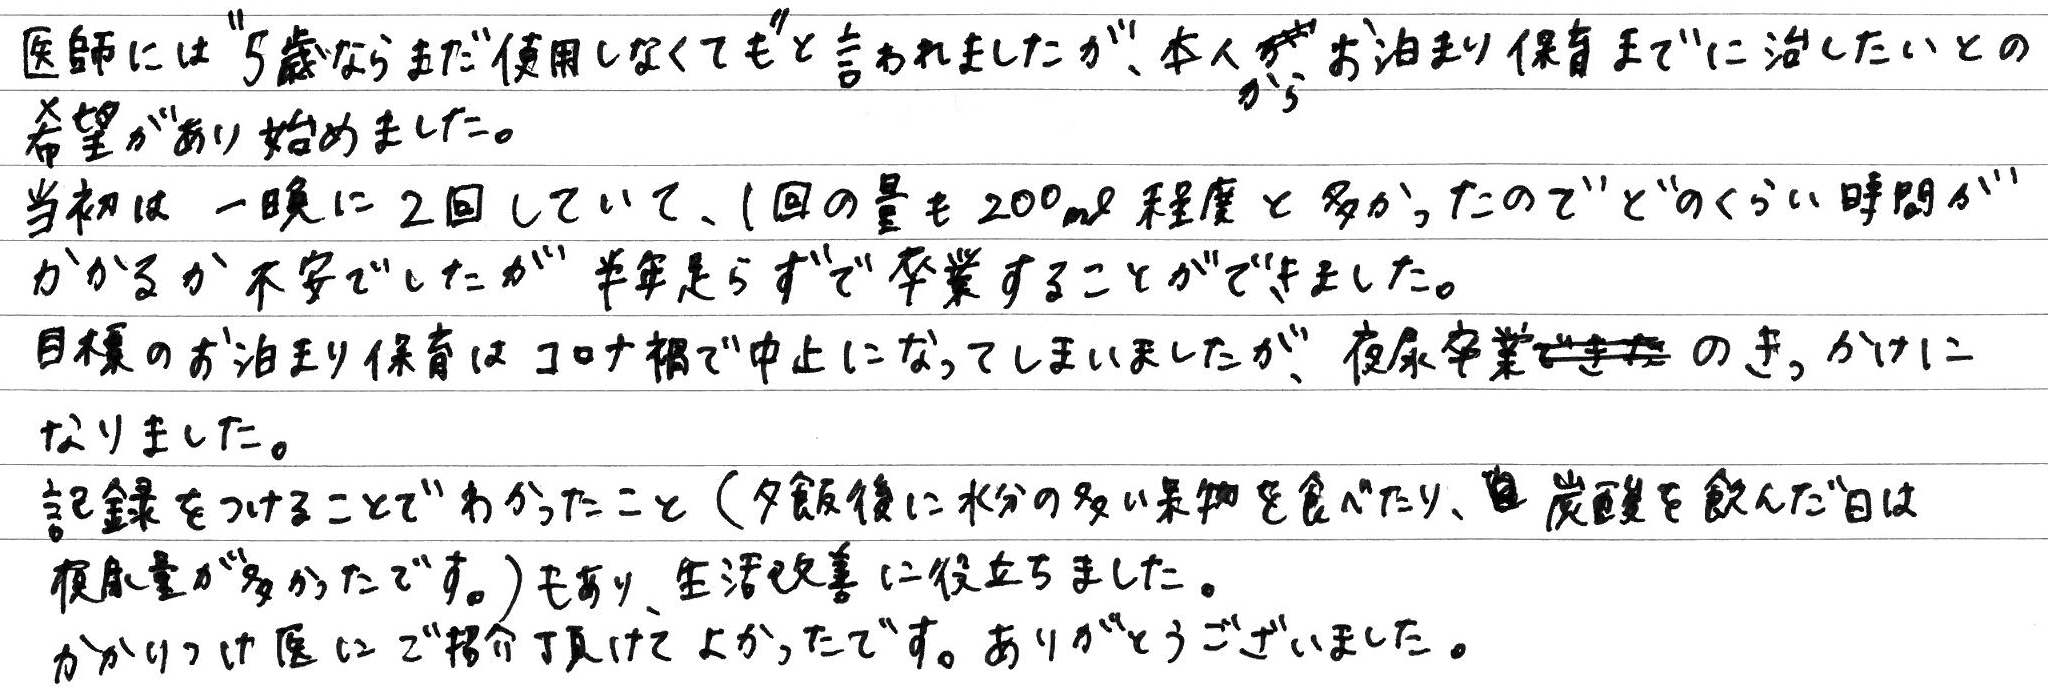 医師には"5歳ならまだ使用しなくても"と言われましたが、本人からお泊まり保育までに治したいとの
希望があり始めました。
当初は一晩に2回していて、1回の量も200ml程度と多かったのでどのくらい時間が
かかるか不安でしたが半年足らずで卒業することができました。
目標のお泊まり保育はコロナ禍で中止になってしまいましたが、夜尿卒業のきっかけに
なりました。
記録をつけることでわかったこと(夕飯後に水分の多い果物を食べたり、炭酸を飲んだ日は
夜尿量が多かったです。)もあり、生活改善に役立ちました。
かかりつけ医にご紹介頂けてよかったです。ありがとうございました。